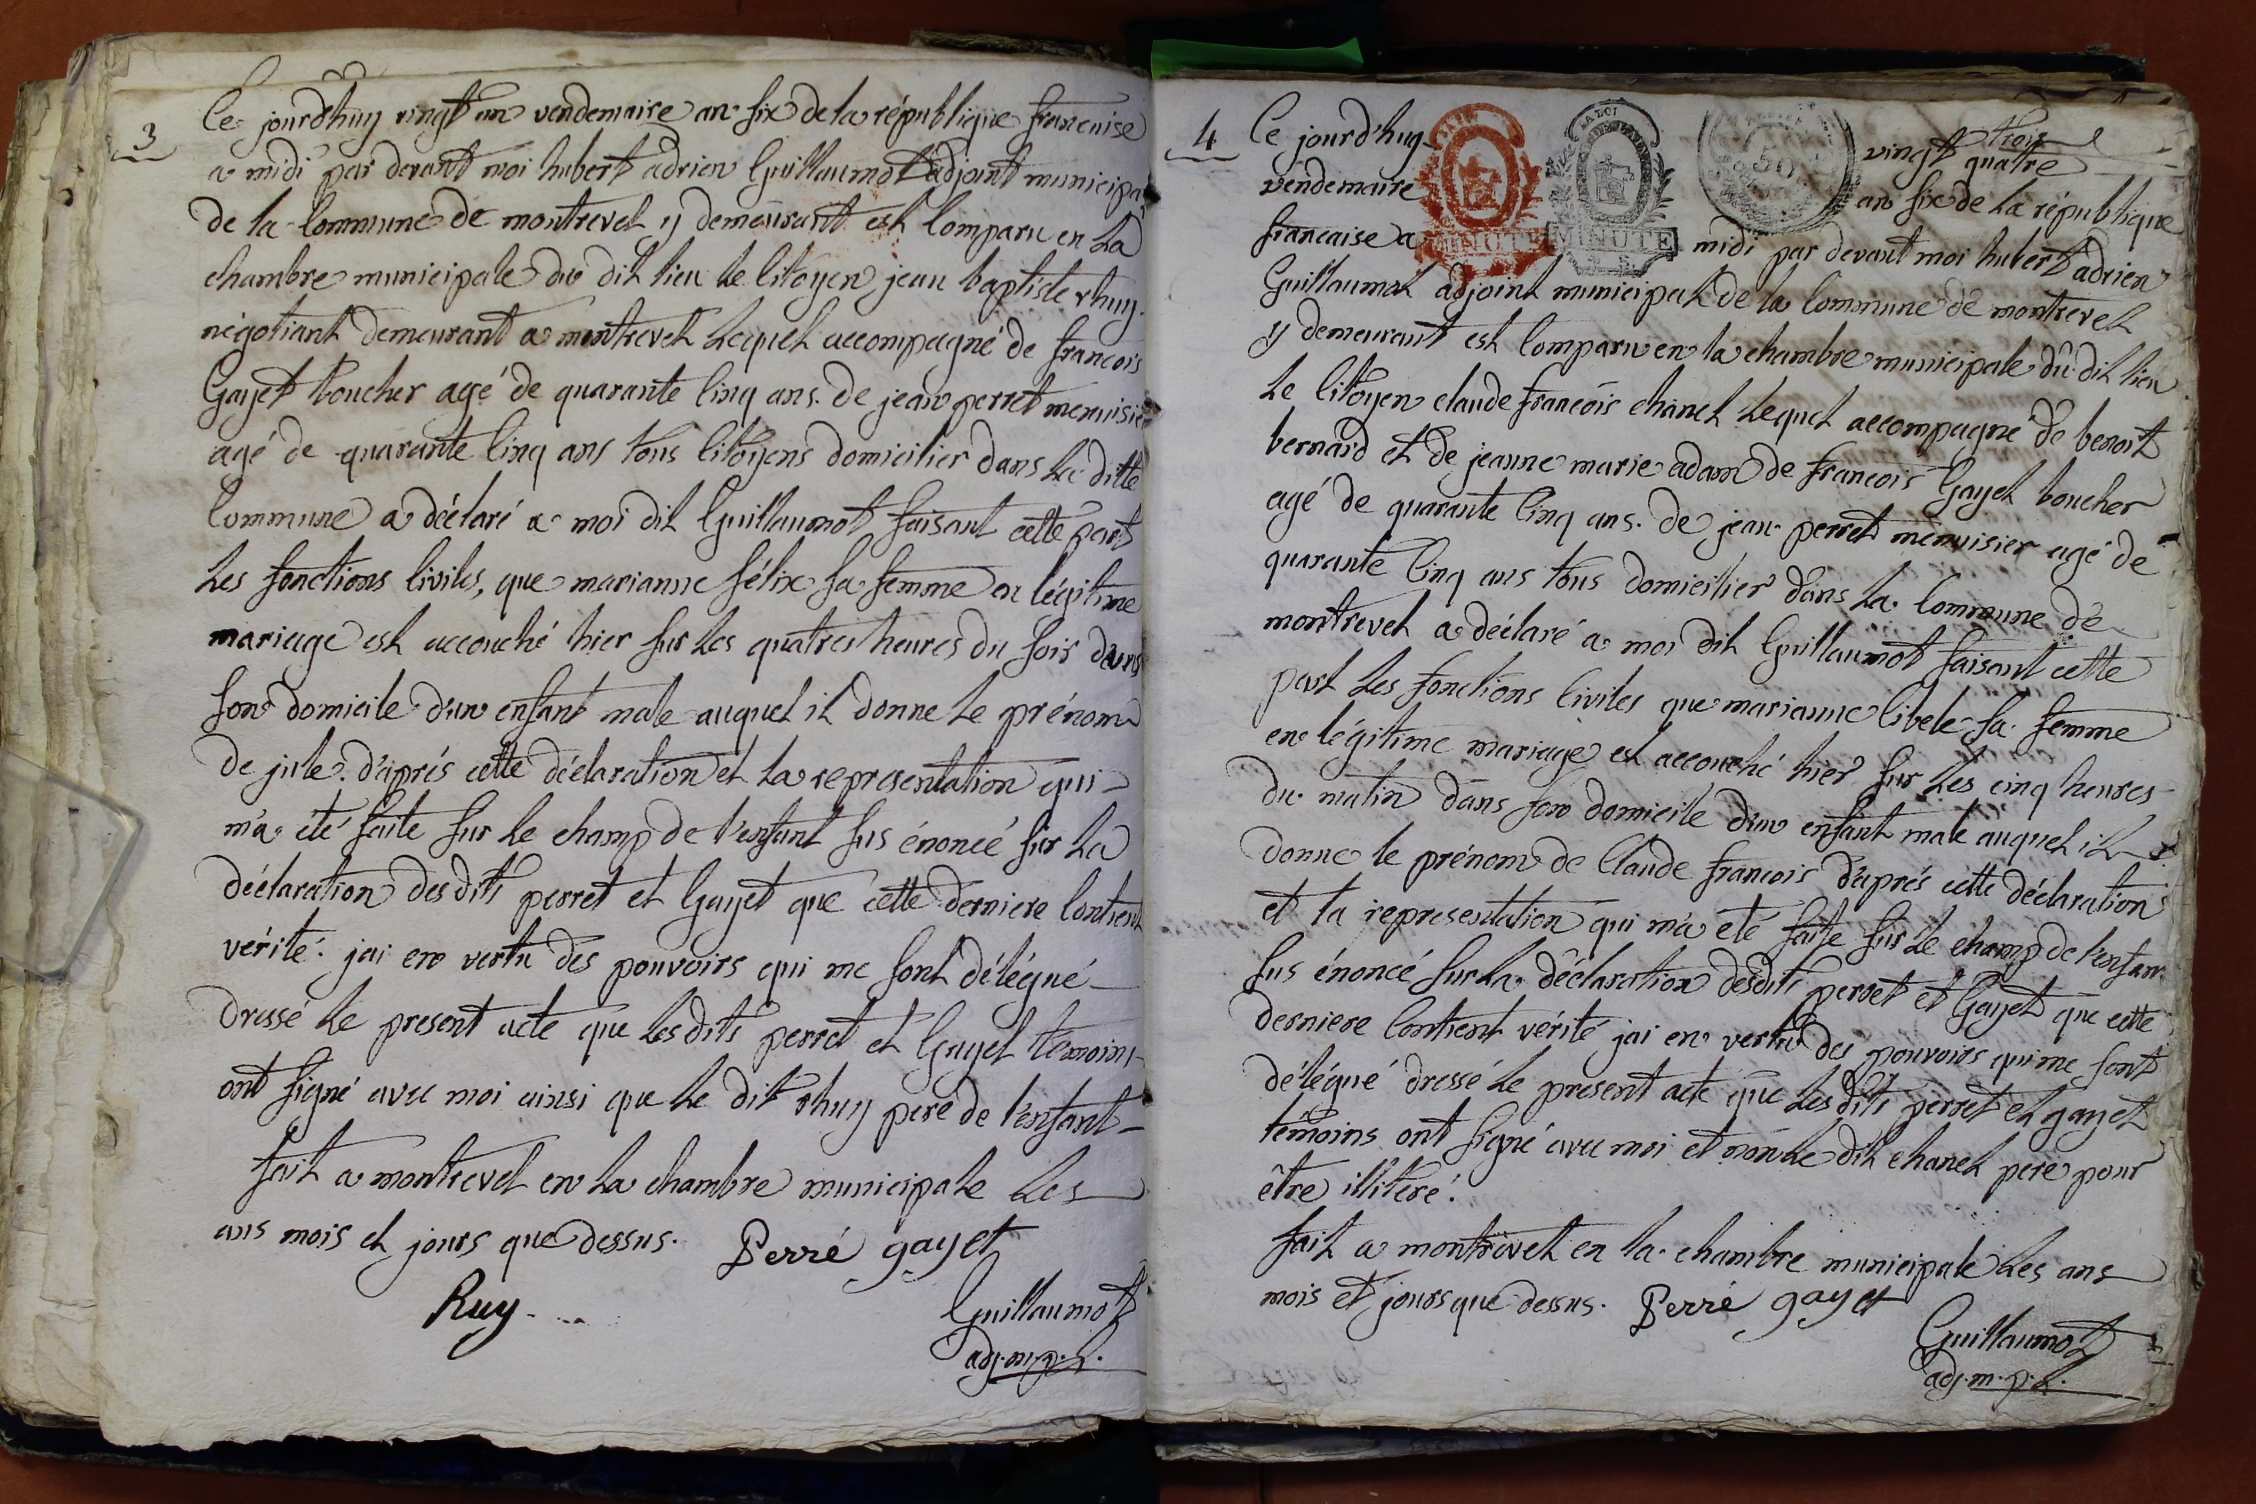 3
Ce jourd'huy vingt un vendemaire an six de la république francaise
a midi par devant moi hubert adrien Guillaumot adjoint municipal
de la Commune de montrevel y demeurant est Comparu en la
chambre municipale du dit lieu le Citoyen jean baptiste rhuy
négotiant demeurant a montrevel Lequel accompagné de francois
Gayet boucher agé de quarante Cinq ans. de jean perret menuisier
agé de quarante Cinq ans tous Citoyens domicilier dans la ditte
Commune a déclaré a moi dit Guillaumot faisant cette part
Les fonctions Civiles, que marianne félix sa femme en légitime
mariage est accouché hier sur les quatres heures du soir dans
son domicile d'un enfant male auquel il donne le prénom
de jule. d'aprés cette déclaration et la representation qui
m'a été faite sur le champ de l'enfant sus énoncé sur la
déclaration desdits perret et Gayet que cette derniere Contient
vérité. jai en vertu des pouvoirs qui me sont délégué
dressé le present acte que lesdits perret et Gayet temoins
ont signé avec moi ainsi que le dit rhuy pere de l'enfant
fait a montrevel en la chambre municipale Les
ans mois et jours que dessus. Perré gayet
Ruy
Guillaumot
adj. m. p. l.
4
Ce jourd'huy vingt quatre trois
vendemaire an six de la république
francaise a midi par devant moi hubert adrien
MINUTE MINUTE
LA LOI
50
Guillaumot adjoint municipal de la Commune de montrevel
y demeurant est Comparu en la chambre municipale du dit lieu
Le Citoyen claude francois chanel Lequel accompagné de benoit
bernard et de jeanne marie adam de francois Gayet boucher
agé de quarante Cinq ans. de jean perret menuisier agé de
quarante Cinq ans tous domicilier dans la Commune de
montrevel a déclaré a moi dit Guillaumot faisant cette
part les fonctions Civiles que marianne Cibele sa femme
en légitime mariage est accouché hier sur les cinq heures
du matin dans son domicile d'un enfant male auquel il
donne le prénom de Claude francois d'aprés cette déclaration
et la representation qui m'a été faite sur le champ de l'enfant
sus énoncé sur la déclaration desdits perret et Gayet que cette
derniere Contient vérité jai en vertu des pouvoirs qui me sont
délégué dressé le present acte que lesdits perret et gayet
témoins ont signé avec moi et non le dit chanel pere pour
être illiteré.
fait a montrevel en la chambre municipale les ans
mois et jours que dessus. Perré gayet
Guillaumot
adj. m. p. l.